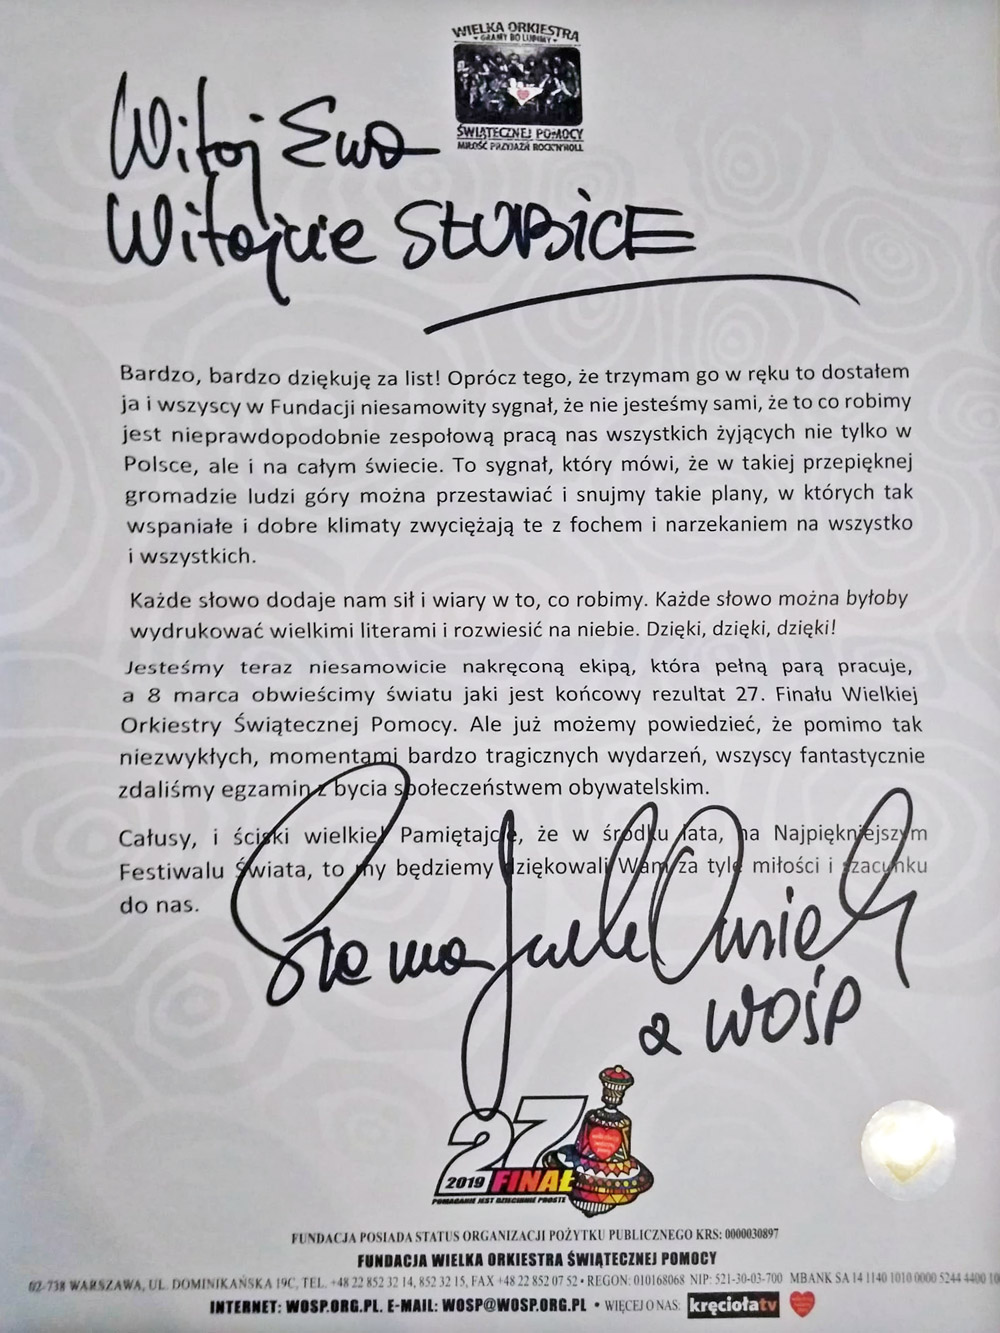 WIELKA ORKIESTRA
• GRAMY BO LUBIMY •
ŚWIĄTECZNEJ POMOCY
MIŁOŚĆ PRZYJAŹŃ ROCK'N'ROLL
Witaj Ewa
Witajcie SŁUBICE
Bardzo, bardzo dziękuję za list! Oprócz tego, że trzymam go w ręku to dostałem
ja i wszyscy w Fundacji niesamowity sygnał, że nie jesteśmy sami, że to co robimy
jest nieprawdopodobnie zespołową pracą nas wszystkich żyjących nie tylko w
Polsce, ale i na całym świecie. To sygnał, który mówi, że w takiej przepięknej
gromadzie ludzi góry można przestawiać i snujmy takie plany, w których tak
wspaniałe i dobre klimaty zwyciężają te z fochem i narzekaniem na wszystko
i wszystkich.
Każde słowo dodaje nam sił i wiary w to, co robimy. Każde słowo można byłoby
wydrukować wielkimi literami i rozwiesić na niebie. Dzięki, dzięki, dzięki!
Jesteśmy teraz niesamowicie nakręconą ekipą, która pełną parą pracuje,
a 8 marca obwieścimy światu jaki jest końcowy rezultat 27. Finału Wielkiej
Orkiestry Świątecznej Pomocy. Ale już możemy powiedzieć, że pomimo tak
niezwykłych, momentami bardzo tragicznych wydarzeń, wszyscy fantastycznie
zdaliśmy egzamin z bycia społeczeństwem obywatelskim.
Całusy, i ściski wielkie! Pamiętajcie, że w środku lata, na Najpiękniejszym
Festiwalu Świata, to my będziemy dziękowali Wam za tyle miłości i szacunku
do nas.
Siema Jurek Owsiak
z WOŚP
27
2019 FINAŁ
POMAGANIE JEST DZIECINNIE PROSTE
FUNDACJA POSIADA STATUS ORGANIZACJI POŻYTKU PUBLICZNEGO KRS: 0000030897
FUNDACJA WIELKA ORKIESTRA ŚWIĄTECZNEJ POMOCY
02-738 WARSZAWA, UL. DOMINIKAŃSKA 19C, TEL. +48 22 852 32 14, 852 32 15, FAX +48 22 852 07 52 • REGON: 010168068 NIP: 521-30-03-700 MBANK SA 14 1140 1010 0000 5244 4400
INTERNET: WOSP.ORG.PL. E-MAIL: WOSP@WOSP.ORG.PL • WIĘCEJ O NAS: kręciołatv